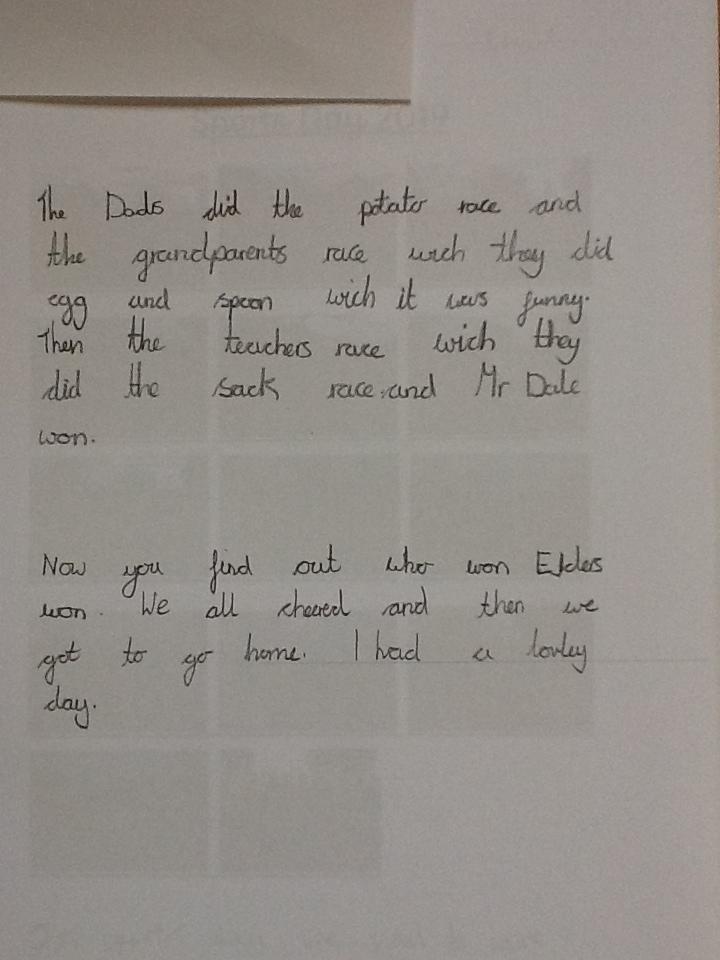 Sports Day 2019
The Dads did the potato race and
the grandparents race wich they did
egg and spoon wich it was funny.
Then the teachers race wich they
did the sack race and Mr Dale
won.
Now you find out who won Elders
won. We all cheered and then we
got to go home. I had a lovley
day.